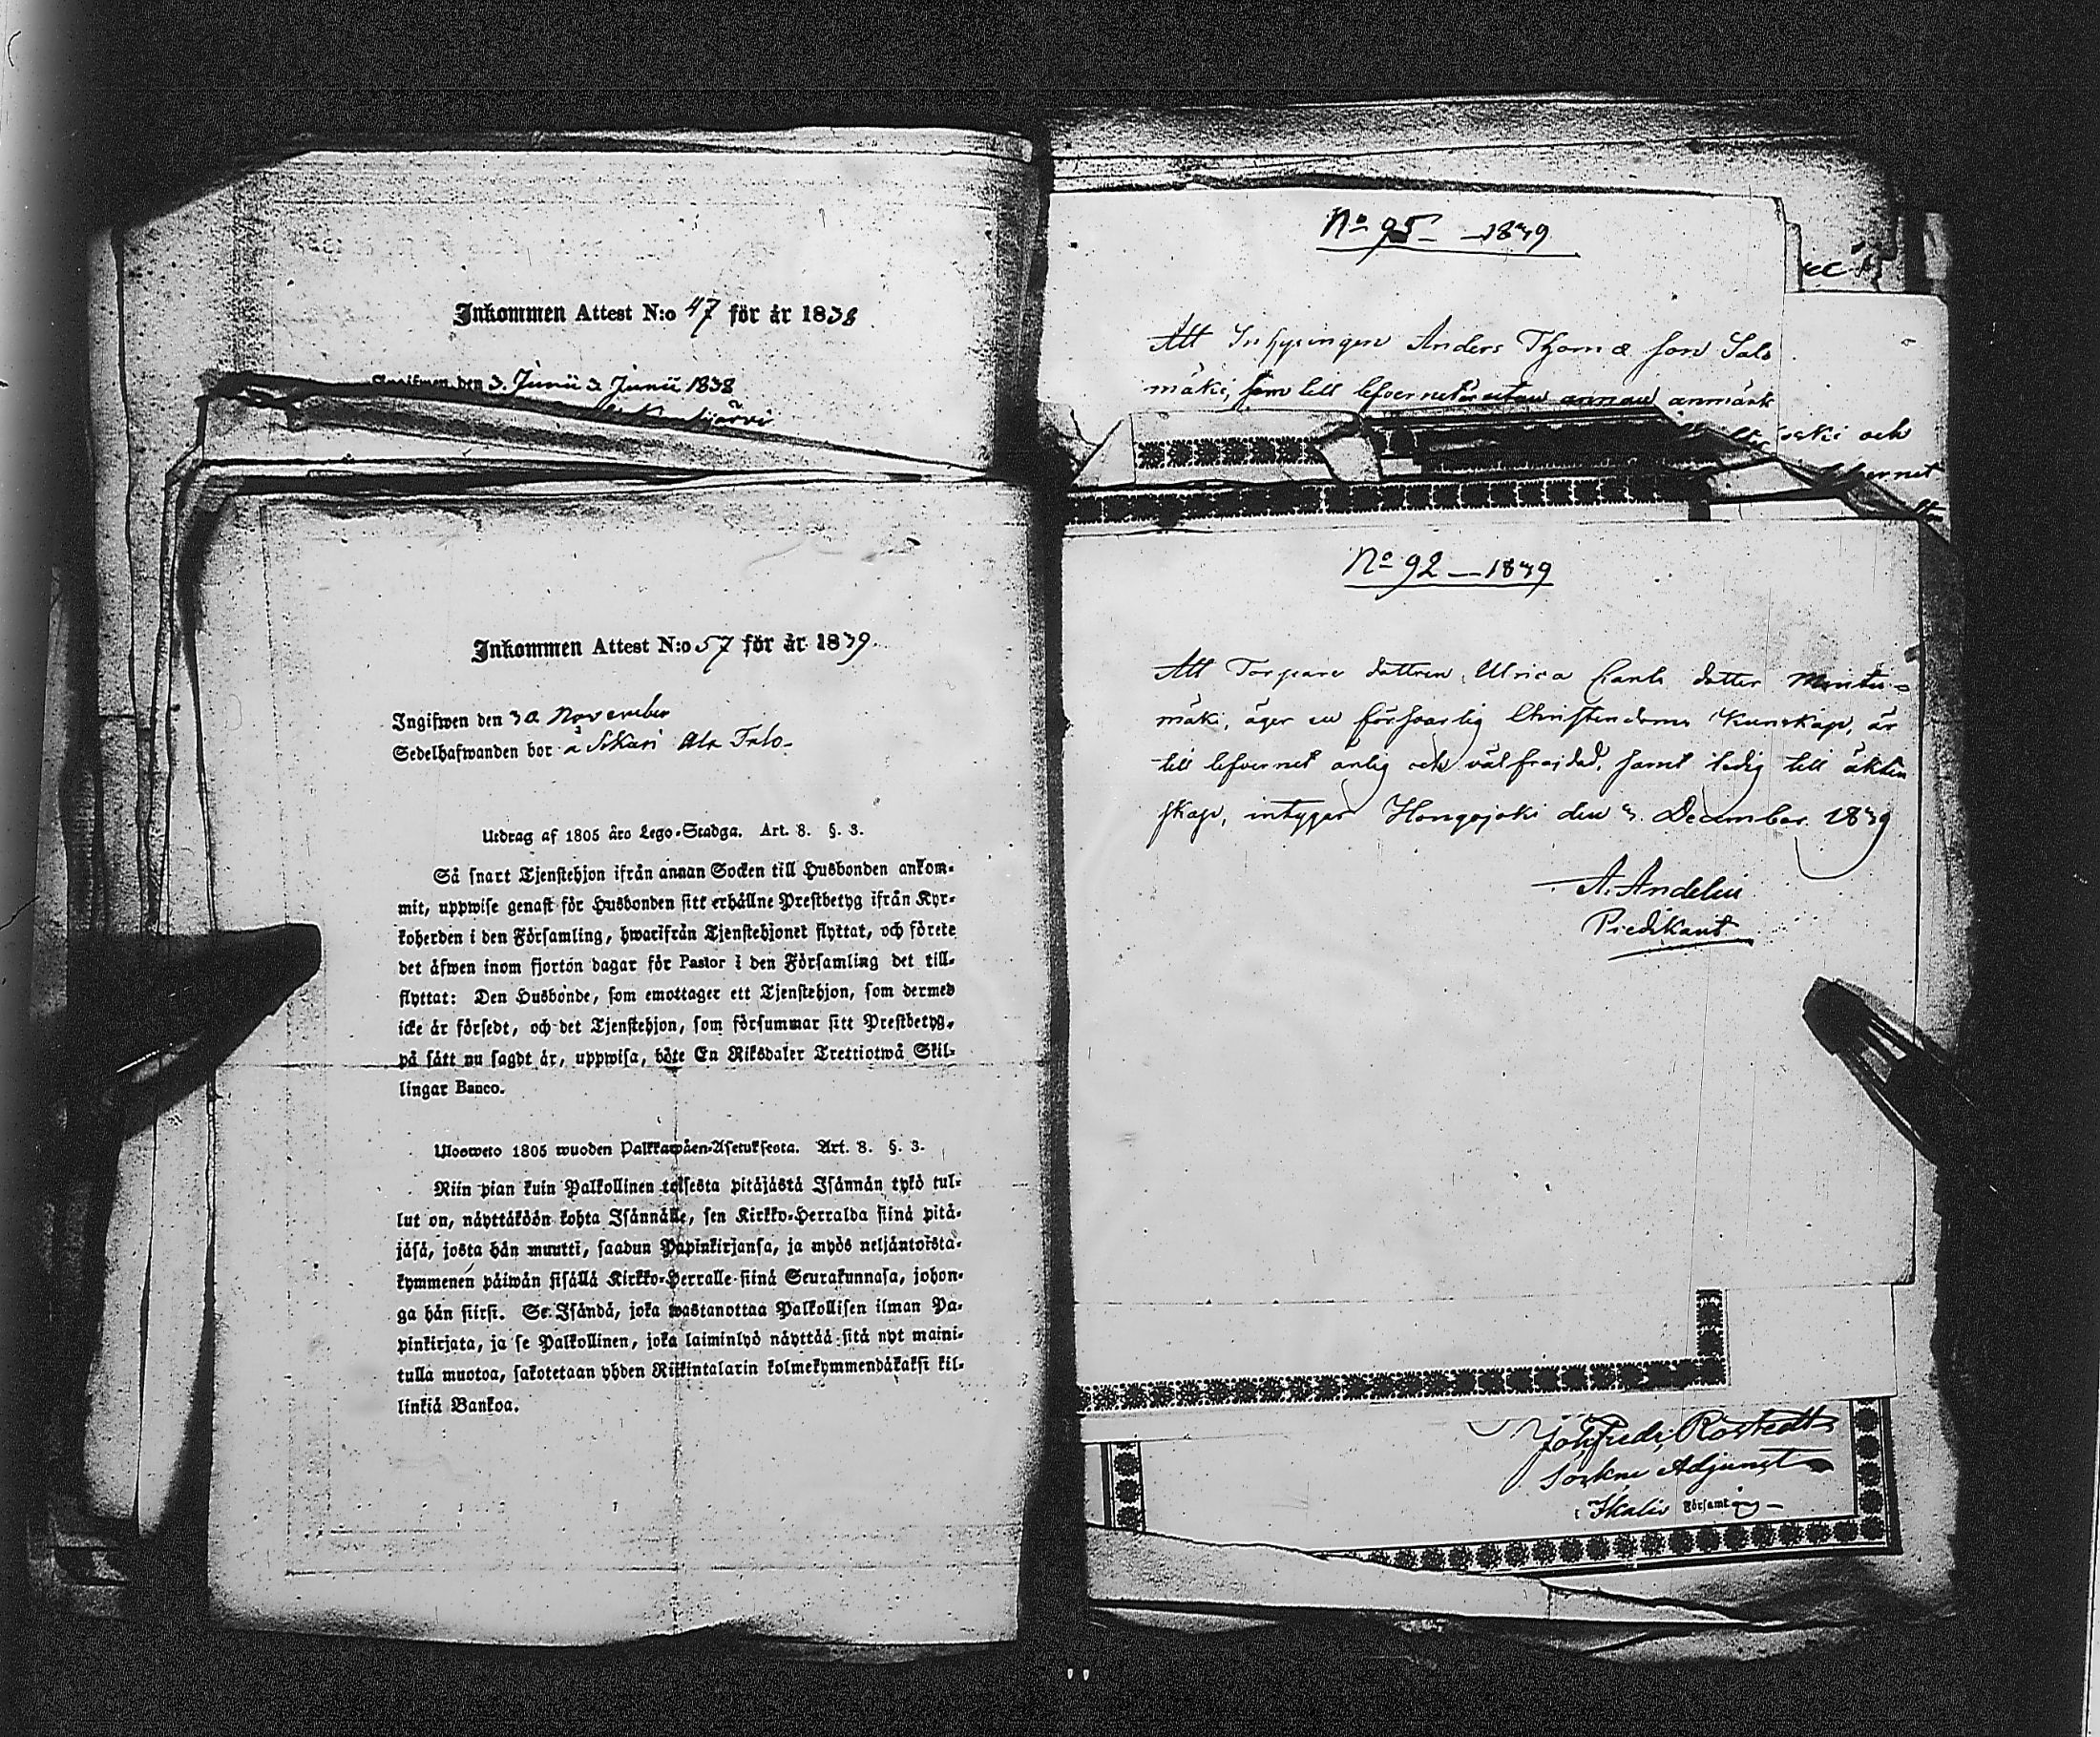 Inkommen Attest N:o 47 för år 1838
Ingifwen den 3. Junii 3 Junii 1838
Inkommen Attest N:o 57 för år 1839.
Ingifwen den 30 November
Sedelhafwanden bor å Sikuri Ala Talo
Utdrag af 1805 års Lego-Stadga. Art. 8. §. 3.
Så snart Tjenstehjon ifrån annan Socken till Husbonden ankom-
mit, uppwise genast för Husbonden sitt erhållne Prestbetyg ifrån Kyr-
koherden i den Församling, hwarifrån Tjenstehjonet flyttat, och förete
det äfwen inom fjorton dagar för Pastor i den Församling det till-
flyttat: Den Husbonde, som emottager ett Tjenstehjon, som dermed
icke är försedt, och det Tjenstehjon, som försummar sitt Prestbetyg,
på sätt nu sagdt är, uppwisa, böte En Riksdaler Trettiotwå Skil-
lingar Banco.
Ulosweto 1805 wuoden Palkkawäen-Asetuksesta. Art. 8. §. 3.
Niin pian kuin Palkollinen toisesta pitäjästä Isännän tykö tul-
lut on, näyttäköön kohta Isännälle, sen Kirkko-Herralda siinä pitä-
jäsä, josta hän muutti, saadun Papinkirjansa, ja myös neljäntoista-
kymmenen päiwän sisällä Kirkko-Herralle siinä Seurakunnasa, johon-
ga hän siirsi. Se Isändä, joka wastanottaa Palkollisen ilman Pa-
pinkirjata, ja se Palkollinen, joka laiminlyö näyttää sitä nyt maini-
tulla muotoa, sakotetaan yhden Riikintalarin kolmekymmendäkaksi kil-
linkiä Bankoa.
No 95 — 1839
Att Inhysingen Anders Thomæ son Salo
mäki, som till lefvernet är utan annan anmärk
och
No 92 — 1839
Att Torpare dottren, Ulrica Carls dotter
mäki, äger en försvarlig Christendoms kunskap, är
till lefvernet ärlig och välfrejdad, samt ledig till äkten
skap, intygar Hongojoki den 3. December 1839
A. Andelin
Predikant
Rostedt
Sockne Adjunct
i Ikalis Församling